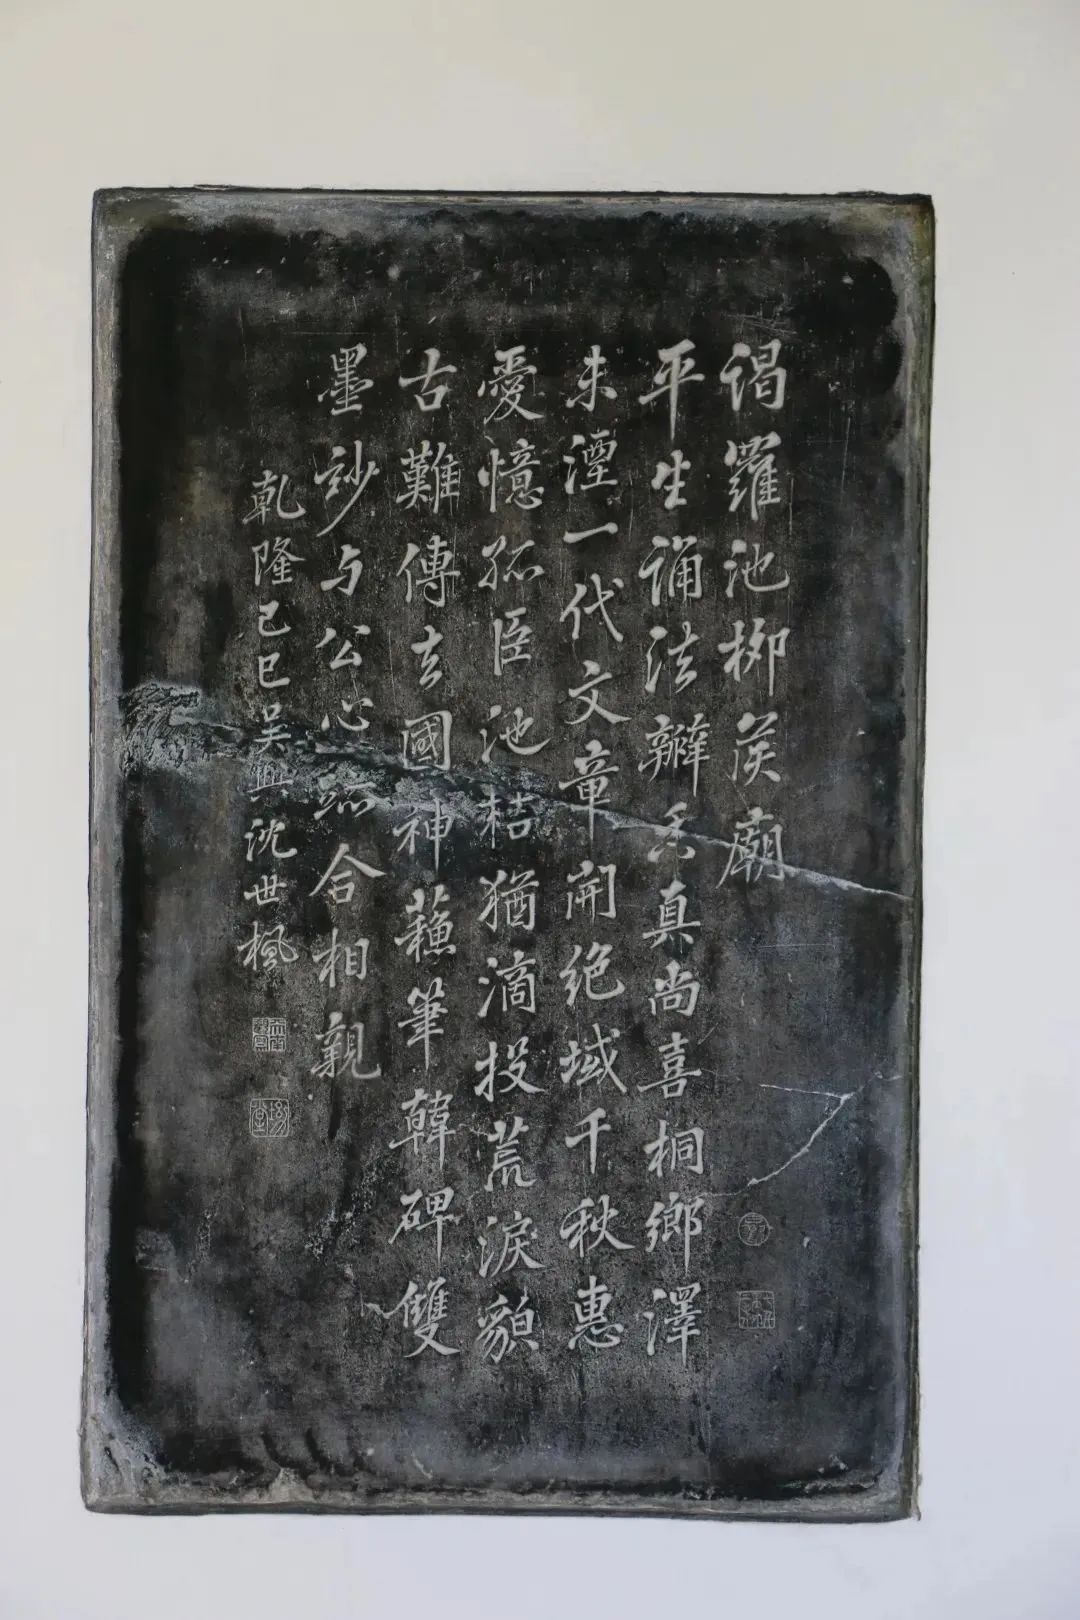 謁羅池柳侯廟
平生誦法瓣香真尚喜桐鄉澤
未湮一代文章開絕域千秋惠
愛憶孤臣池桔猶滴投荒淚貌
古難傳去國神蘓筆韓碑雙
墨妙与公心跡合相親
乾隆己巳吴興沈世楓